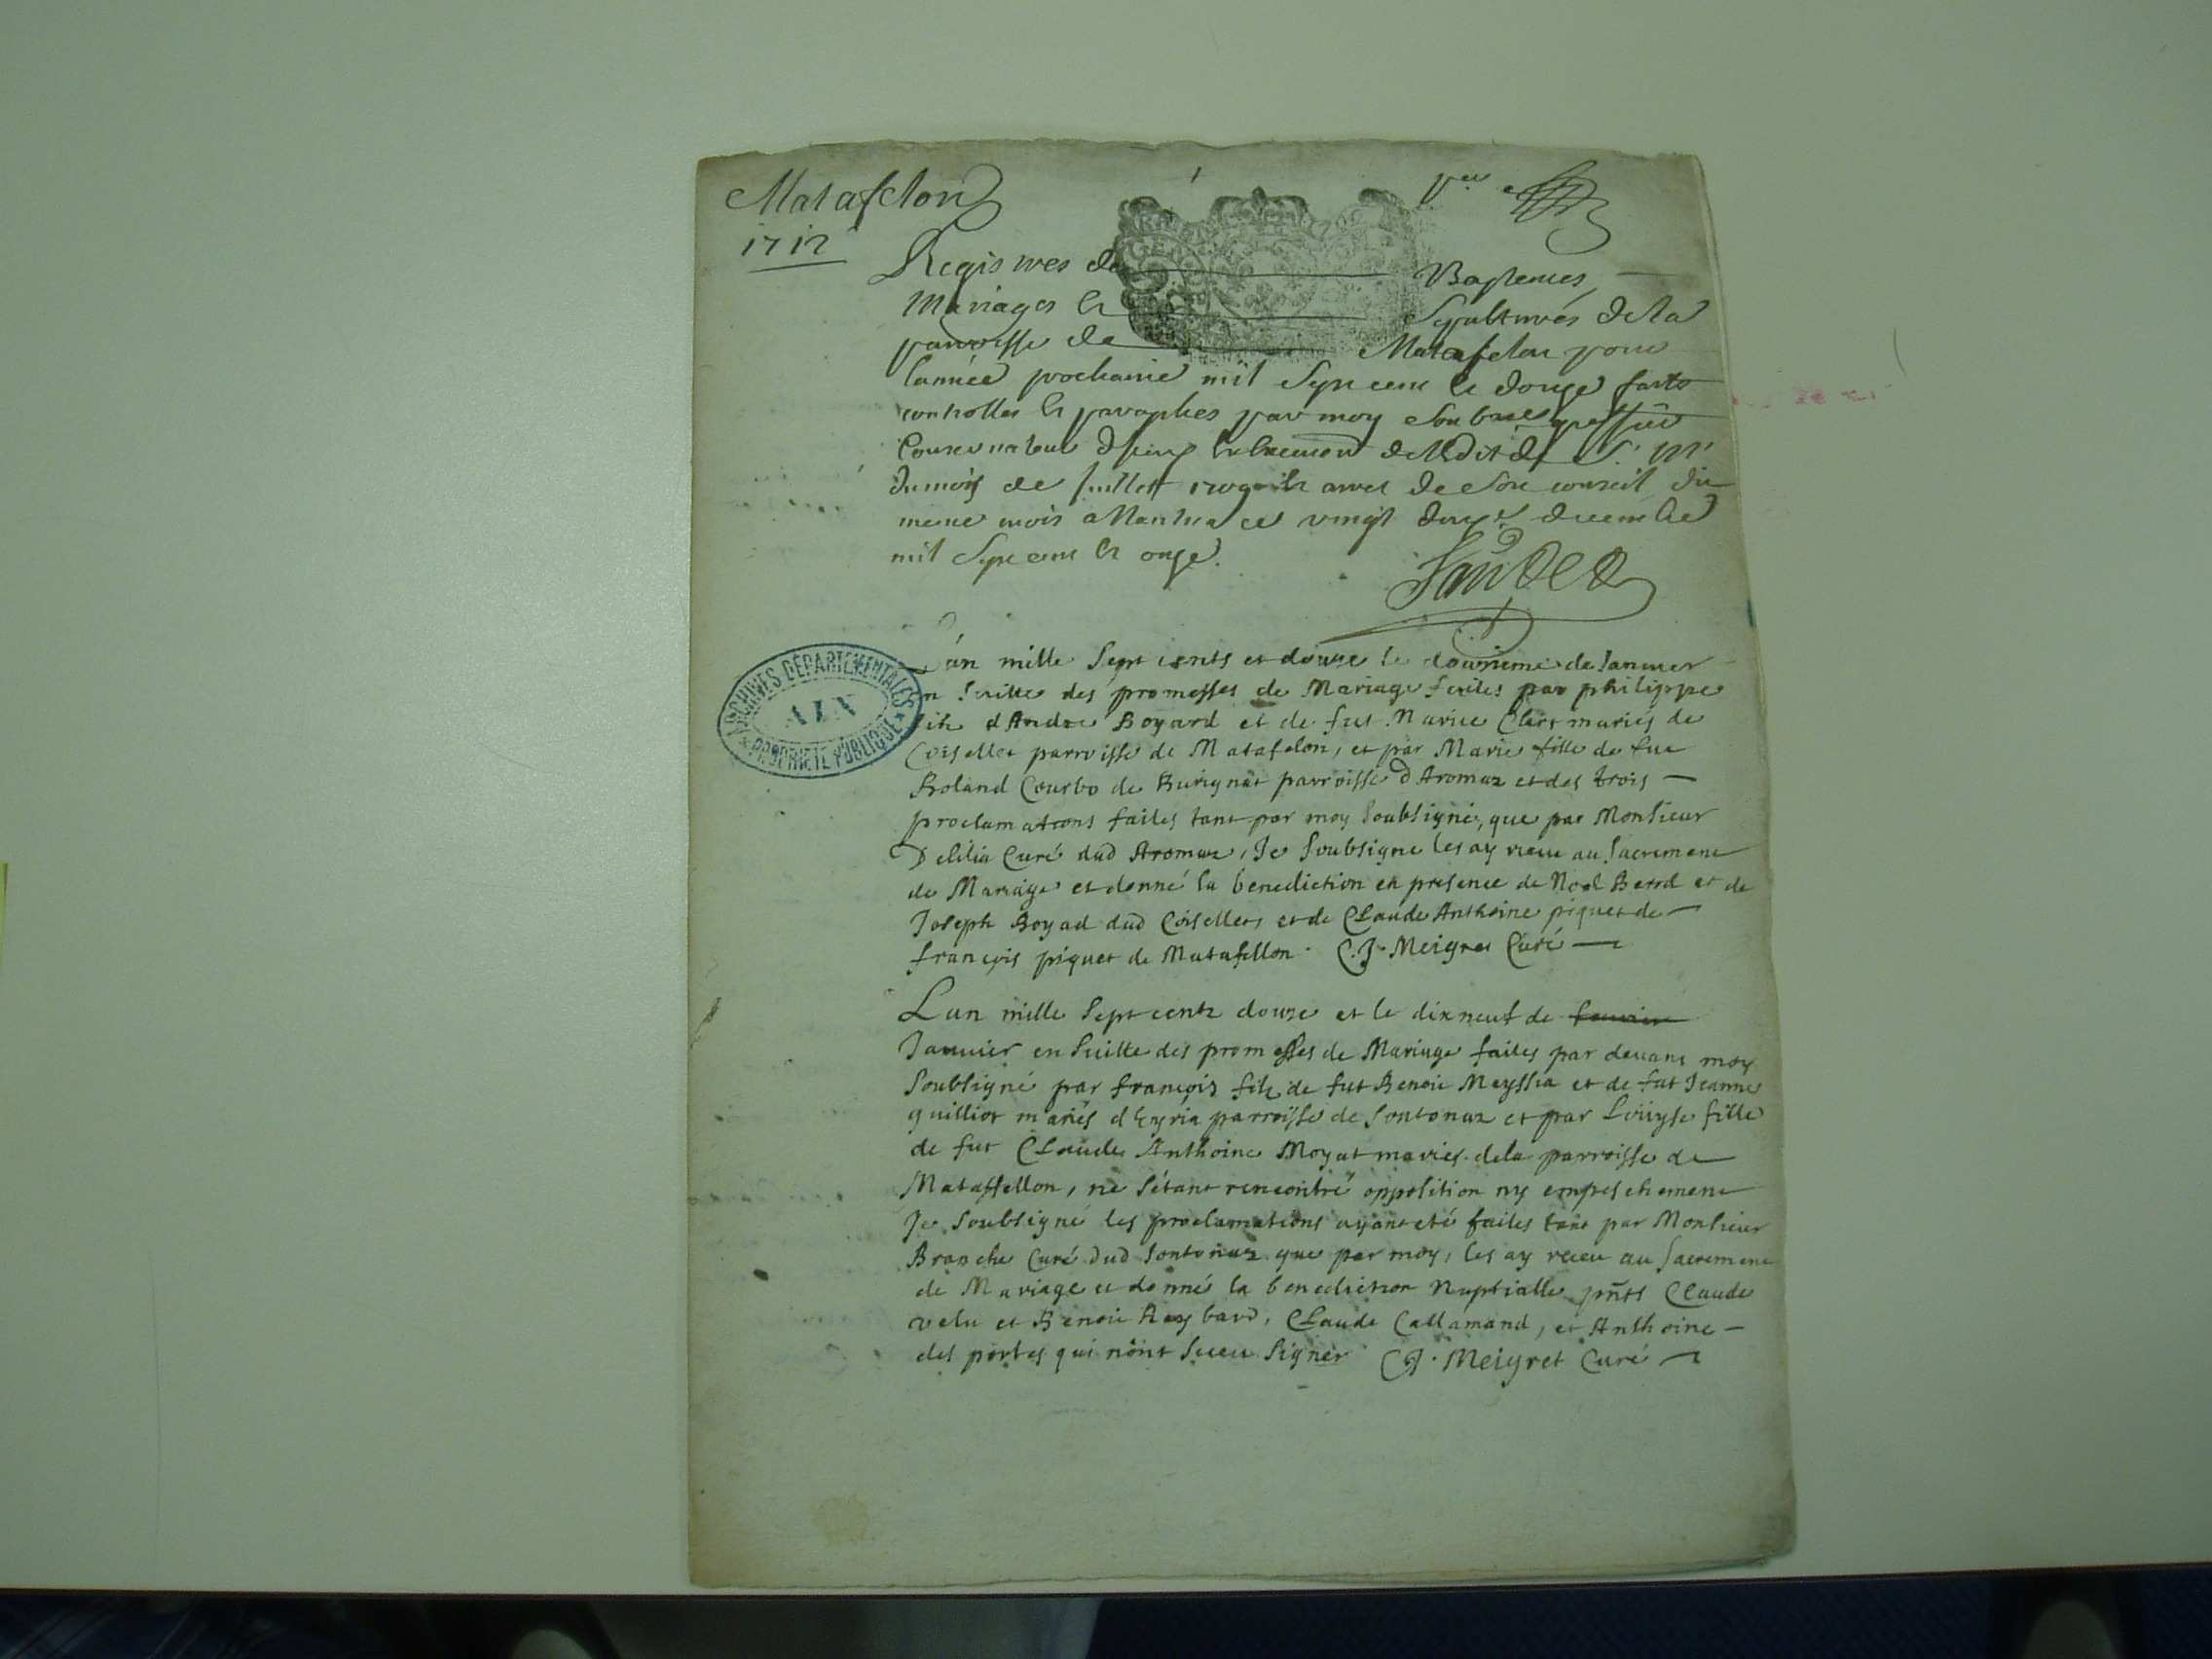 Matafelon
1712
Registres de Baptemes
Mariages & Sepultures de la
parroisse de Matafelon pour
l'année prochaine mil sept cent & douze
controlles & paraphes par moy
du mois de Juillet & arret de son conseil du
meme mois a Nantua ce vingt decembre
mil sept cent & onze.
ARCHIVES DÉPARTEMENTALES
AIN
PROPRIÉTÉ PUBLIQUE
L'an mille sept cents et douze le douzieme de Janvier
en suitte des promesses de Mariage faites par philippe
filz d'Andre Boyard et de fut Marie Clert mariés de
Coiselles parroisse de Matafelon, et par Marie fille de fut
Roland Courbo de Burignat parroisse d'Aromaz et des trois
proclamations failes tant par moy soubsigné, que par Monsieur
Delilia Curé dud Aromaz, Je soubsigne les ay receu au sacrement
de Mariage et donné la benediction en presence de Noel Berrod et de
Joseph Boyad dud Coiselles, et de Claude Anthoine piquet de
françois piquet de Matafellon. C. J. Meigret Curé
L'an mille sept centz douze et le dixneuf de
Janvier en suitte des promesses de Mariage faites par devant moy
soubsigné par françois filz de fut Benoit Meyssia et de fut Jeanne
guilliot mariés d'Eyria parroisse de Sontonaz et par Louyse fille
de fut Claude Anthoine Moyat mariés de la parroisse de
Mataffellon, ne s'étant rencontré opposition ny empeschement
Je soubsigné les proclamations ayant eté failes tant par Monsieur
Branche Curé dud Sontonaz que par moy, les ay receu au sacrement
de Mariage et donné la benediction Nuptialle pñts Claude
velu et Benoit Reybard, Claude Callamand, et Anthoine
des portes qui n'ont sceu signer C J. Meigret Curé